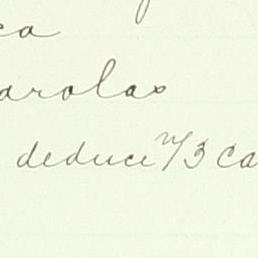 ca
arolas
deduci n/3 ca